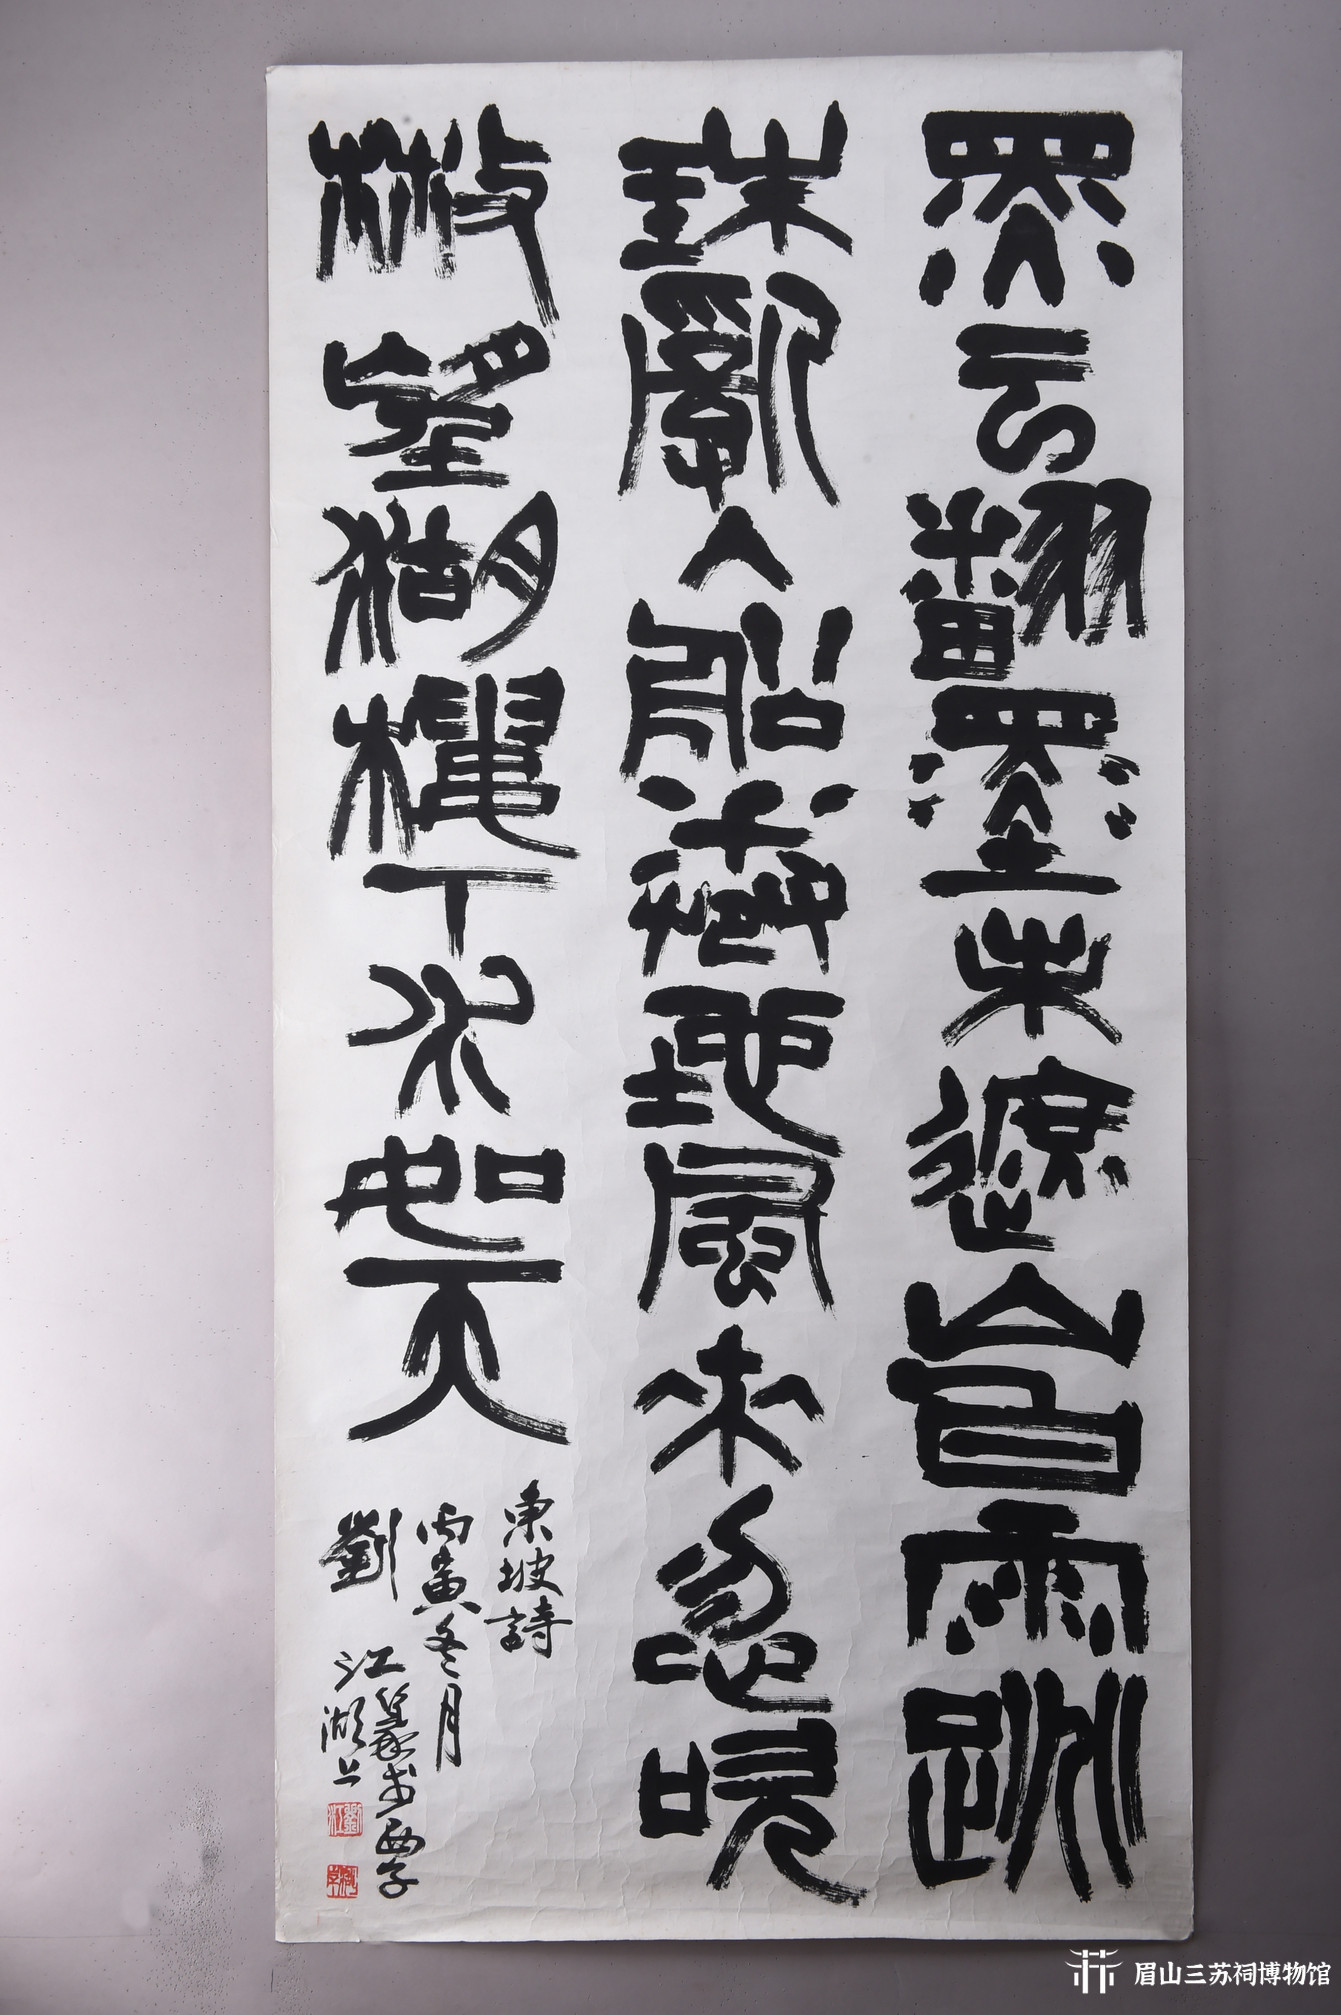 黑云翻墨未遮山白雨跳
珠亂入船卷地風来忽吹
散望湖樓下水如天
東坡詩
丙寅冬月
劉江篆於西子
湖上
劉江
眉山三苏祠博物馆